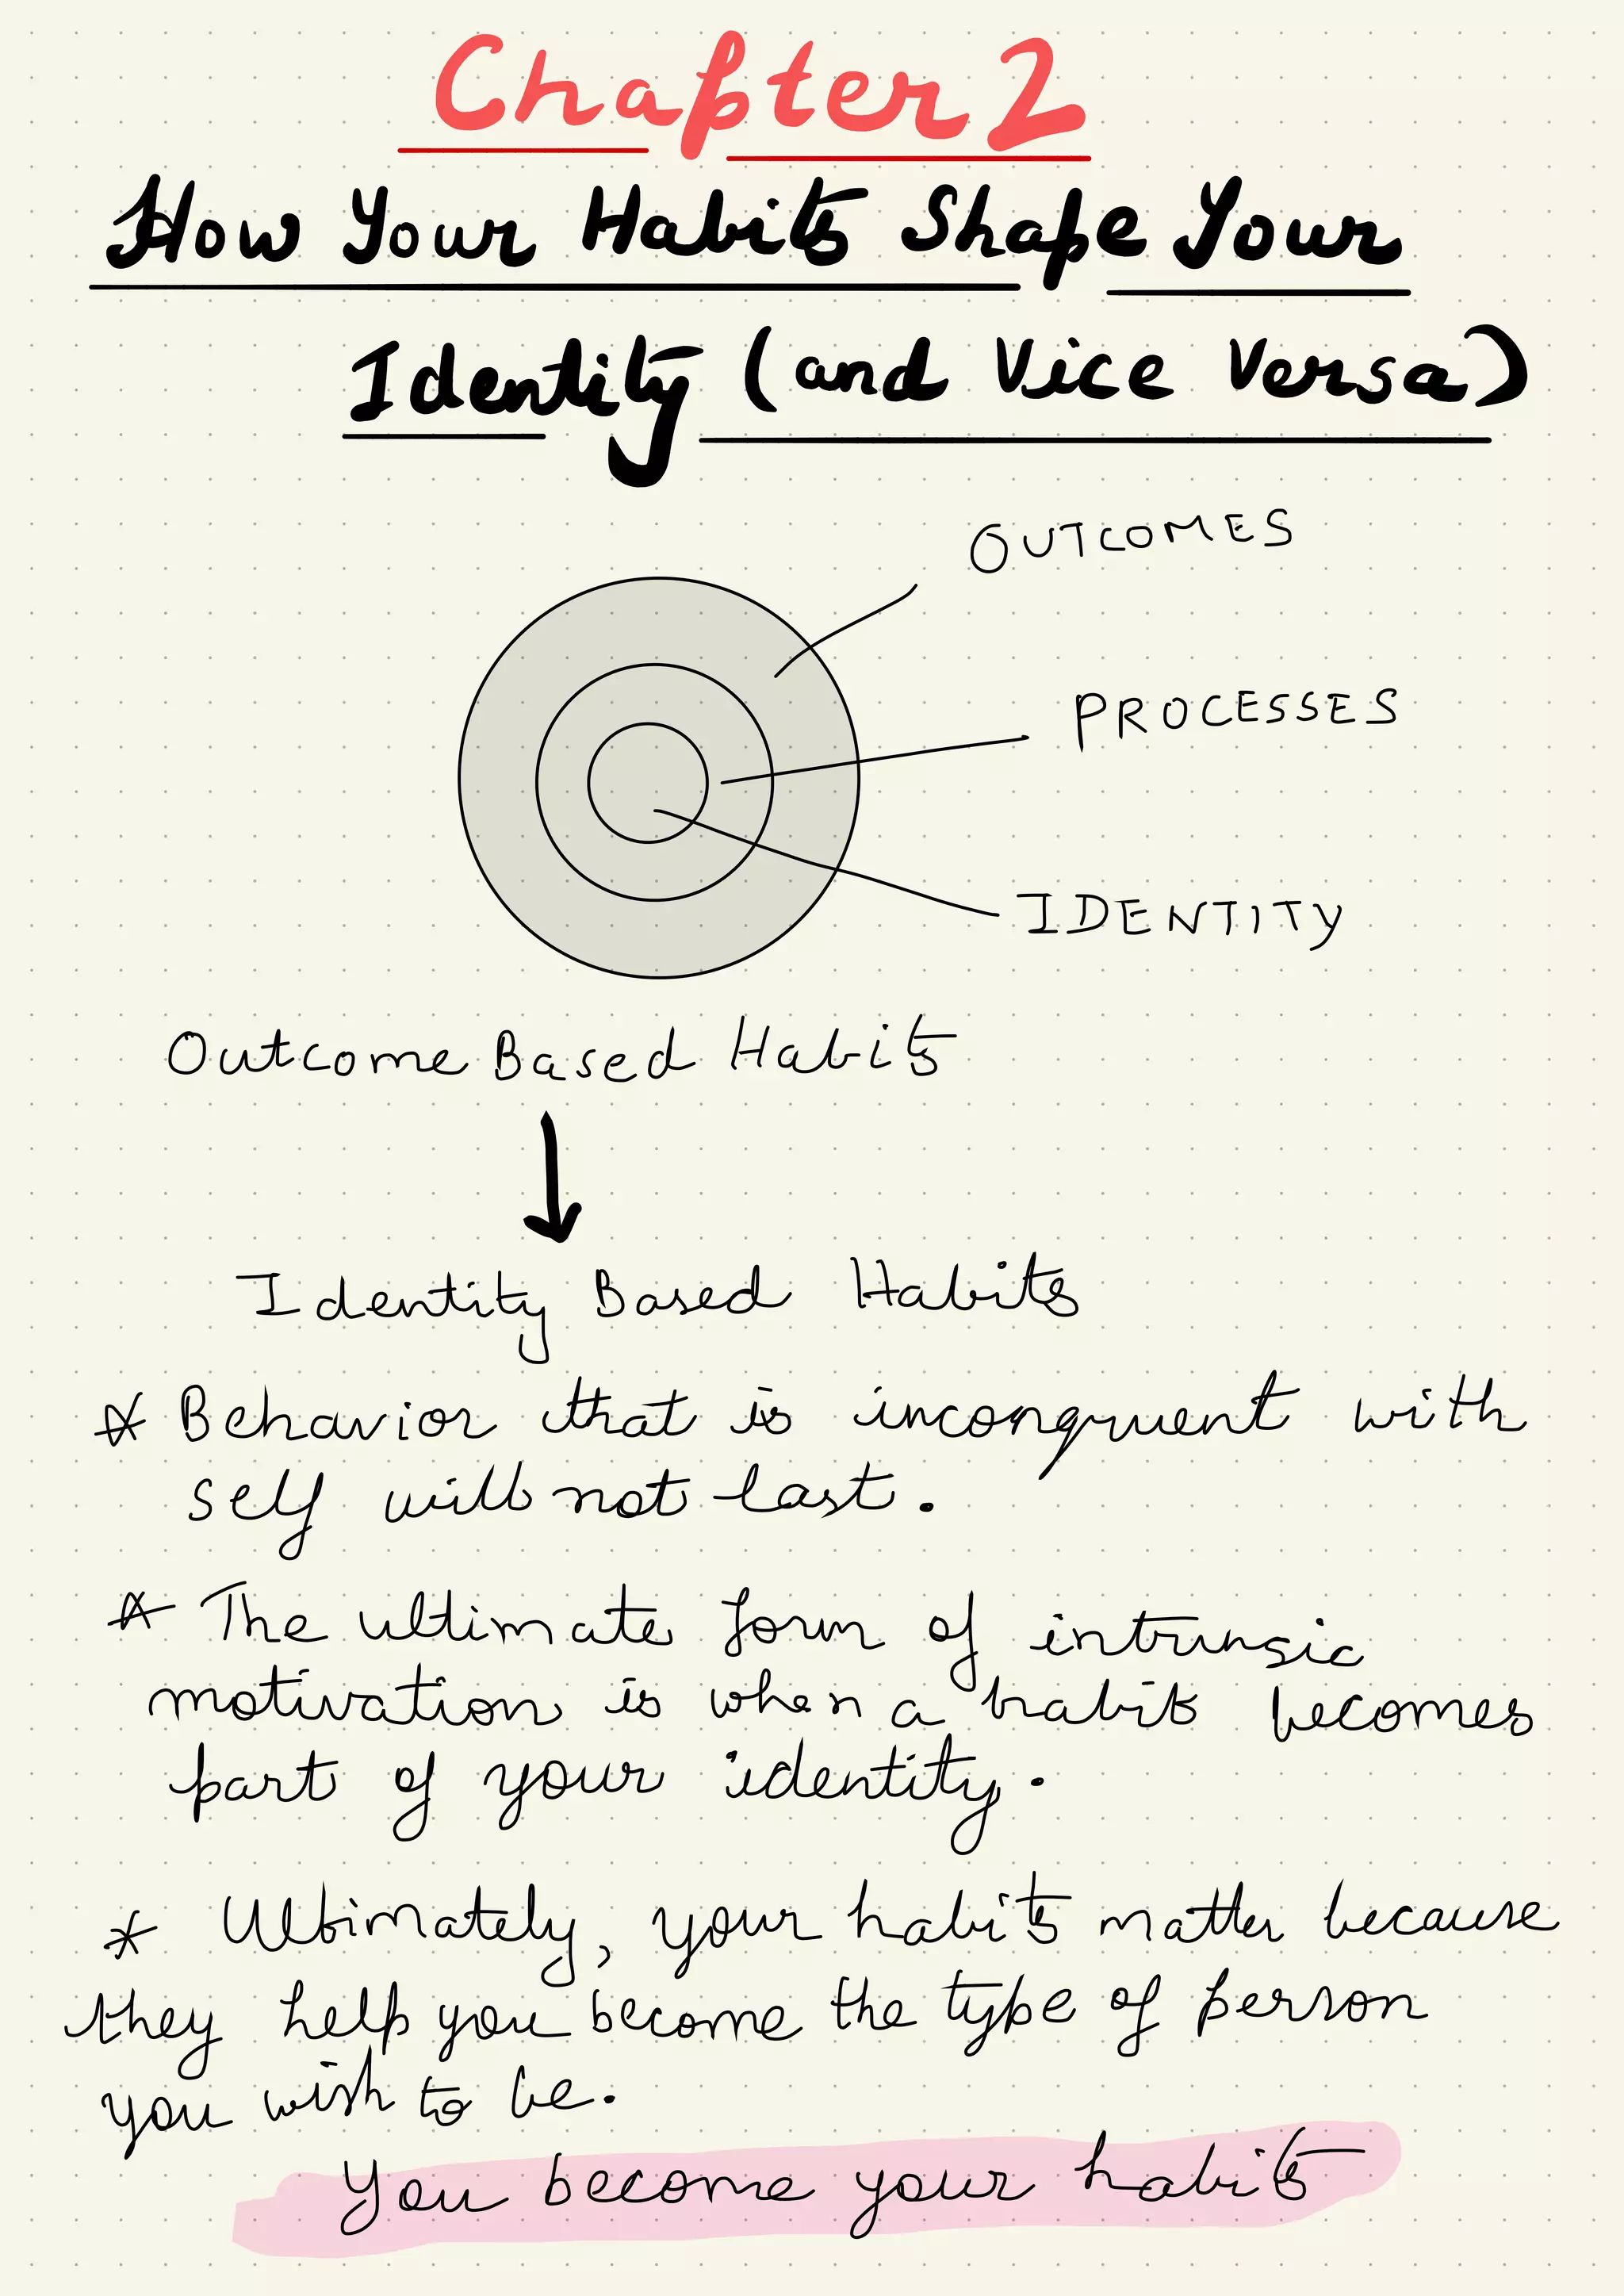 Chapter 2
How Your Habits Shape Your
Identity (and Vice Versa)
OUTCOMES
PROCESSES
IDENTITY
Outcome Based Habits
Identity Based Habits
* Behavior that is incongruent with
self will not last.
* The ultimate form of intrinsic
motivation is when a habit becomes
part of your identity.
* Ultimately, your habits matter because
they help you become the type of person
you wish to be.
You become your habits